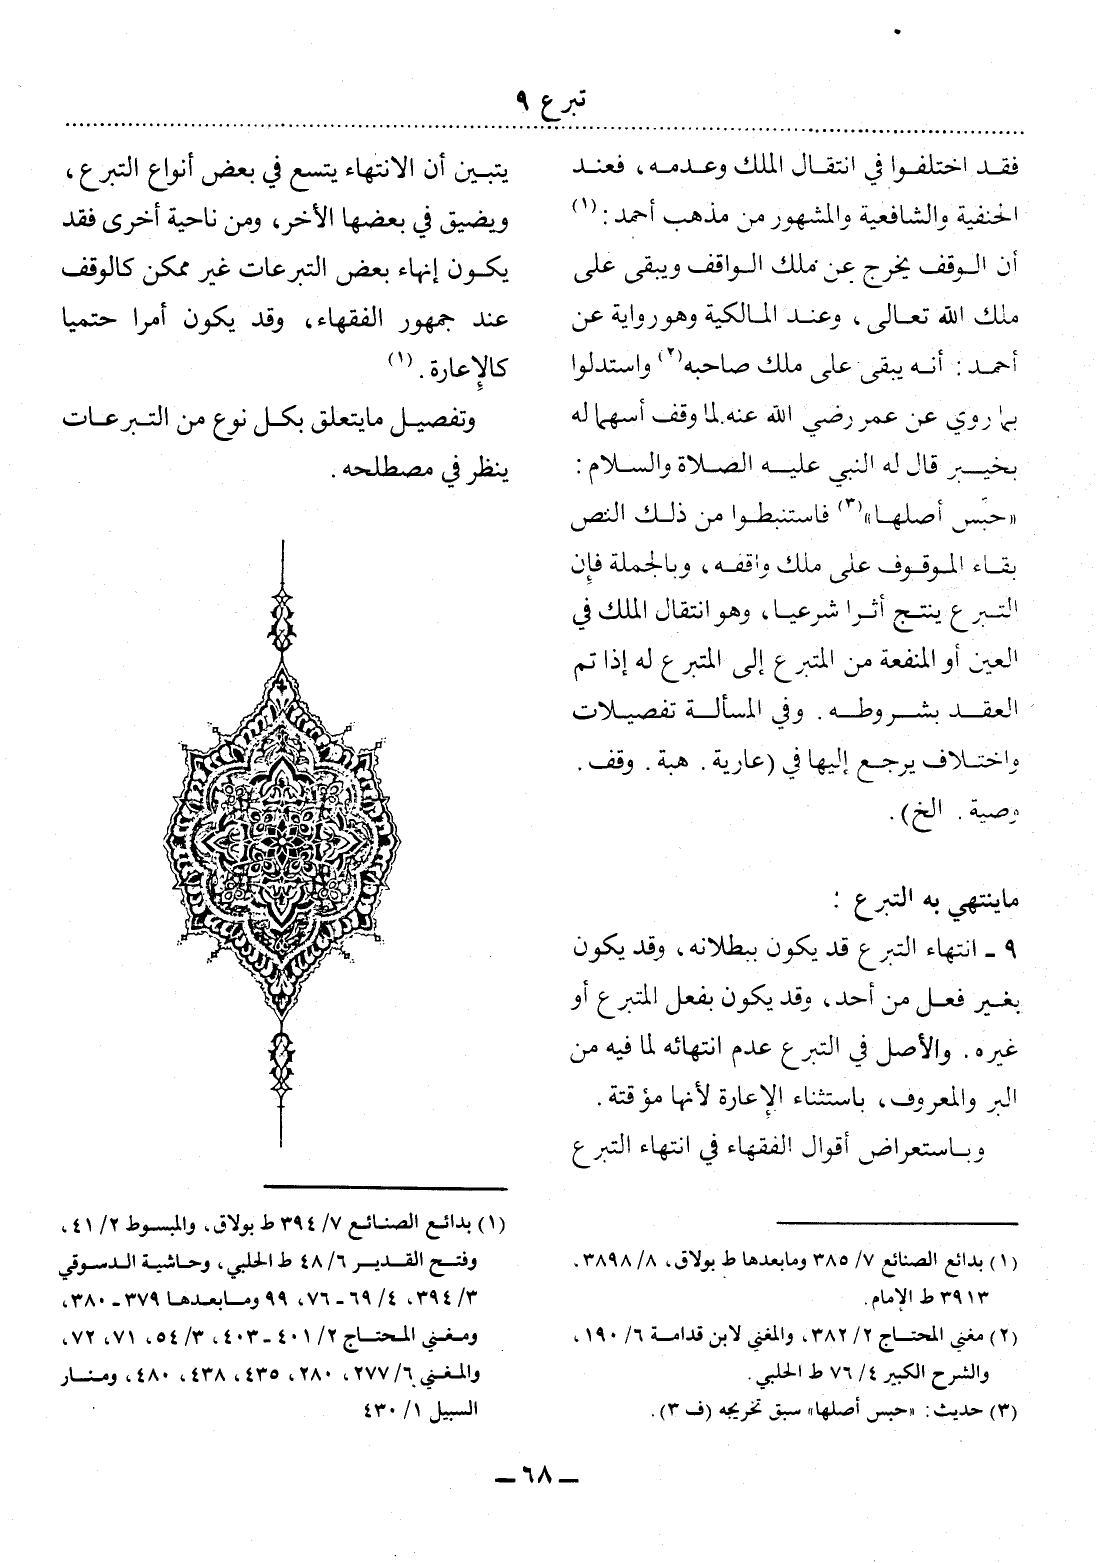 تبرع ٩
فقد اختلفوا في انتقال الملك وعدمه، فعند
الحنفية والشافعية والمشهور من مذهب أحمد: (١)
أن الوقف يخرج عن ملك الواقف ويبقى على
ملك الله تعالى، وعند المالكية وهو رواية عن
أحمد: أنه يبقى على ملك صاحبه(٢) واستدلوا
بما روي عن عمر رضي الله عنه لما وقف أسهما له
بخيبر قال له النبي عليه الصلاة والسلام:
«حبّس أصلها»(٣) فاستنبطوا من ذلك النص
بقاء الموقوف على ملك واقفه، وبالجملة فإن
التبرع ينتج أثرا شرعيا، وهو انتقال الملك في
العين أو المنفعة من المتبرع إلى المتبرع له إذا تم
العقد بشروطه. وفي المسألة تفصيلات
واختلاف يرجع إليها في (عارية. هبة. وقف.
وصية. الخ).
ماينتهي به التبرع :
٩ ـ انتهاء التبرع قد يكون ببطلانه، وقد يكون
بغير فعل من أحد، وقد يكون بفعل المتبرع أو
غيره. والأصل في التبرع عدم انتهائه لما فيه من
البر والمعروف، باستثناء الإعارة لأنها مؤقتة.
وباستعراض أقوال الفقهاء في انتهاء التبرع
(١) بدائع الصنائع ٧/ ٣٨٥ ومابعدها ط بولاق، ٨/ ٣٨٩٨،
٣٩١٣ ط الإمام.
(٢) مغني المحتاج ٢/ ٣٨٢، والمغني لابن قدامة ٦/ ١٩٠،
والشرح الكبير ٤/ ٧٦ ط الحلبي.
(٣) حديث: «حبس أصلها» سبق تخريجه (ف ٣).
يتبين أن الانتهاء يتسع في بعض أنواع التبرع،
ويضيق في بعضها الأخر، ومن ناحية أخرى فقد
يكون إنهاء بعض التبرعات غير ممكن كالوقف
عند جمهور الفقهاء، وقد يكون أمرا حتميا
كالإعارة. (١)
وتفصيل مايتعلق بكل نوع من التبرعات
ينظر في مصطلحه.
(١) بدائع الصنائع ٧/ ٣٩٤ ط بولاق، والمبسوط ٢/ ٤١،
وفتح القدير ٦/ ٤٨ ط الحلبي، وحاشية الدسوقي
٣/ ٣٩٤، ٤/ ٦٩ـ ٧٦، ٩٩ ومابعدها ٣٧٩ ـ ٣٨٠،
ومغني المحتاج ٢/ ٤٠١ـ ٤٠٣، ٣/ ٥٤، ٧١، ٧٢،
والمغني ٦/ ٢٧٧، ٢٨٠، ٤٣٥، ٤٣٨، ٤٨٠، ومنار
السبيل ١/ ٤٣٠
ـ ٦٨ ـ